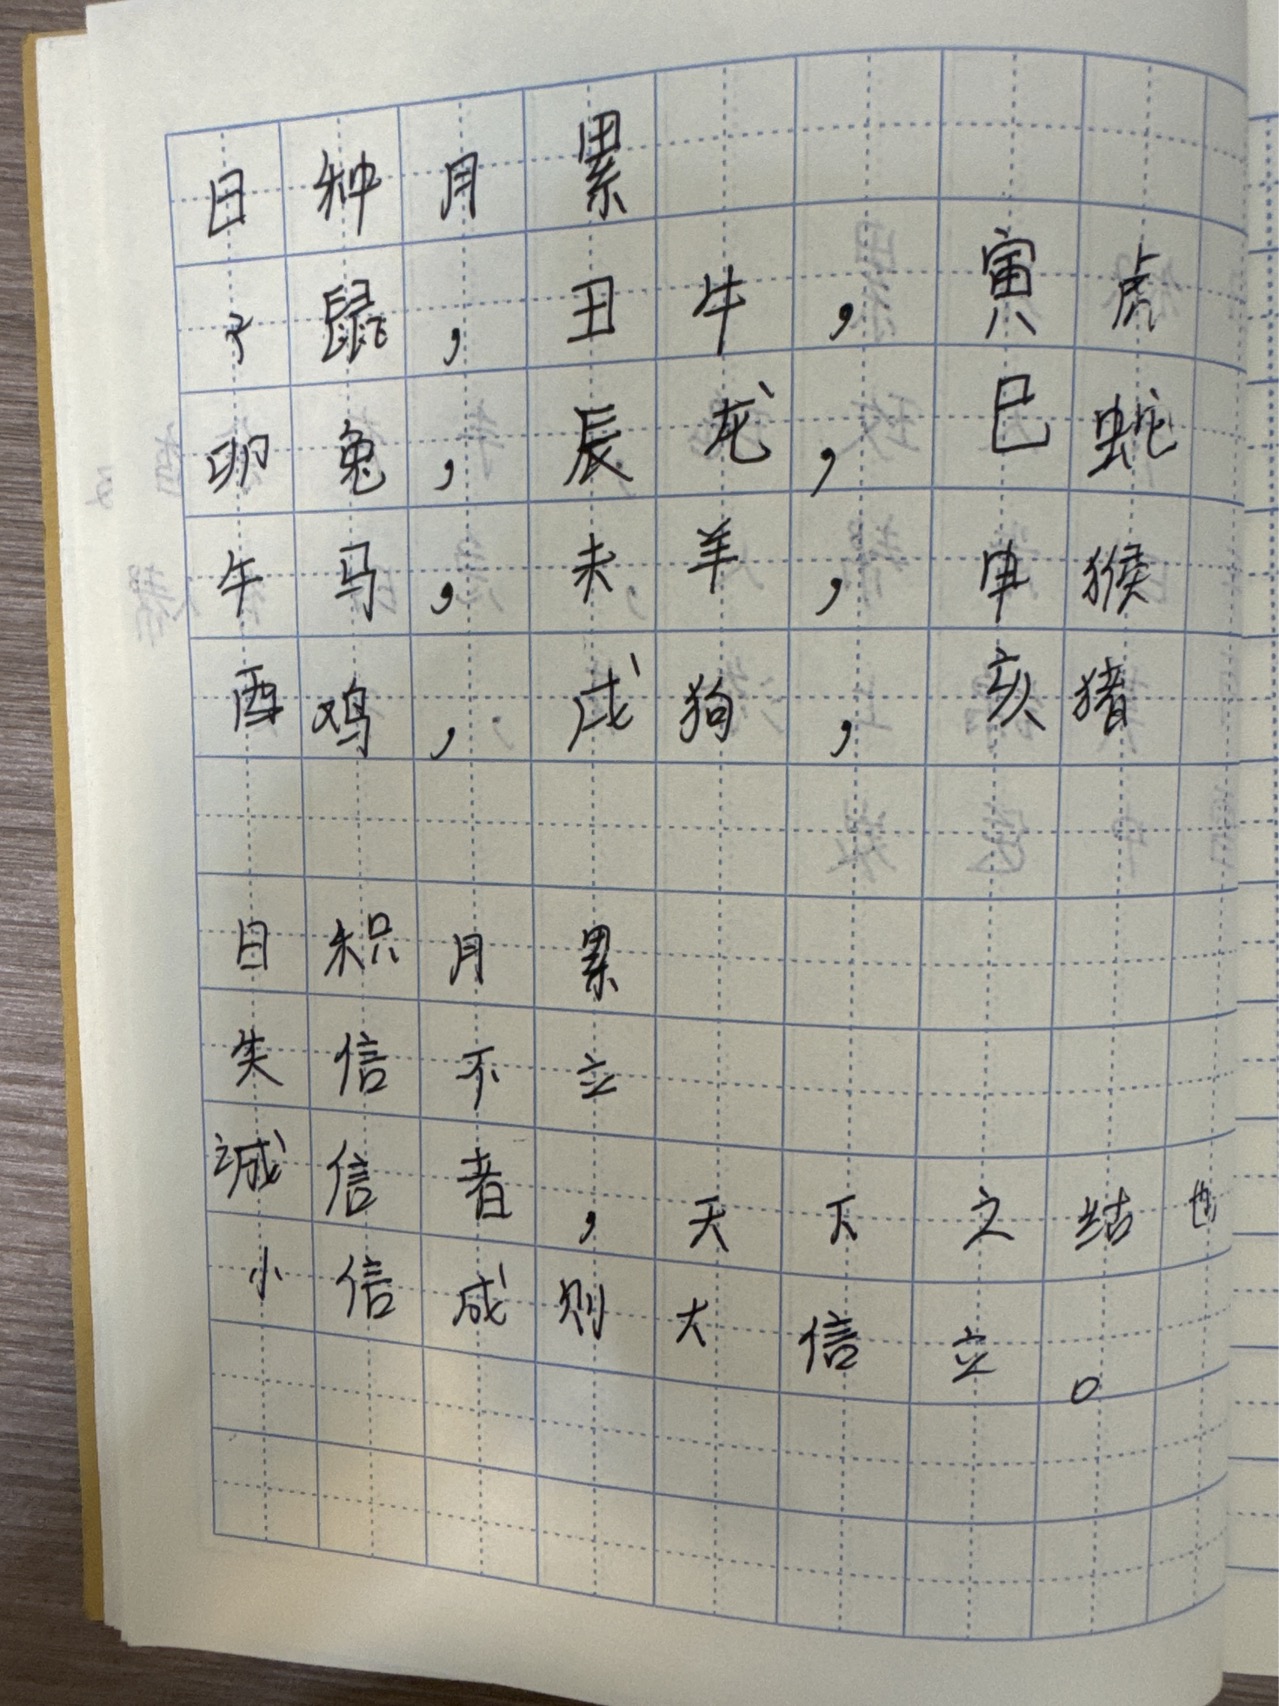 日种月累
子鼠,丑牛,寅虎
卯兔,辰龙,巳蛇
午马,未羊,申猴
酉鸡,戌狗,亥猪
日积月累
失信不立
诚信者,天下之结也
小信成则大信立。